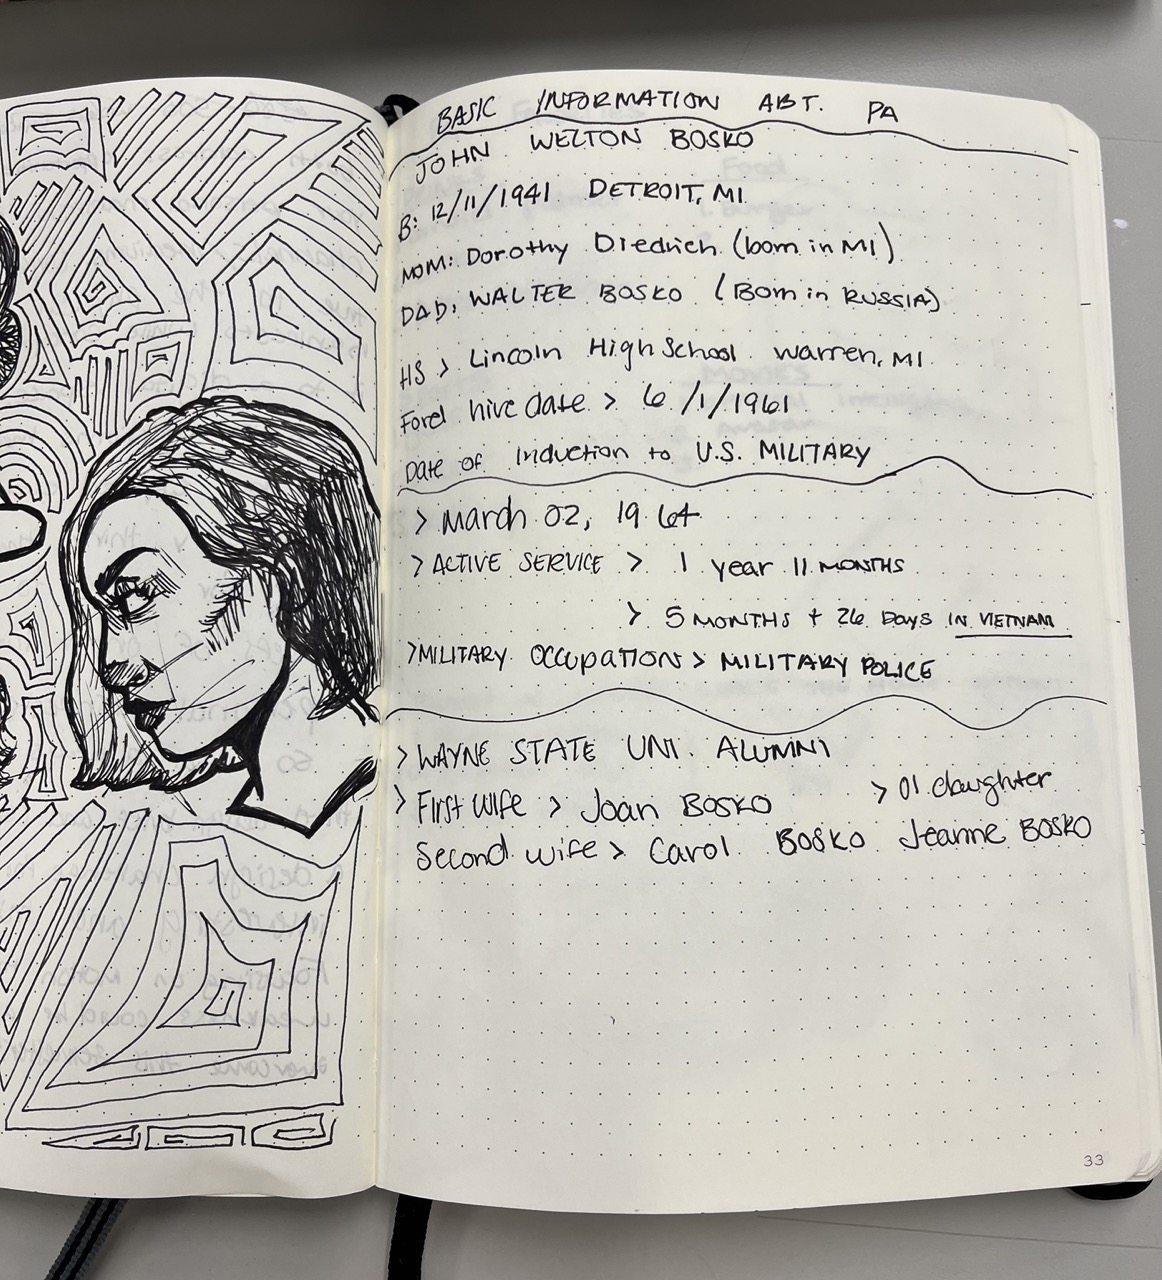 BASIC INFORMATION ABT. PA
JOHN WELTON BOSKO
B: 12/11/1941 DETROIT, MI
MOM: Dorothy Diedrich (born in MI)
DAD: WALTER BOSKO (Born in RUSSIA)
HS > Lincoln High School Warren, MI
Ford hire date > 6/1/1961
Date of induction to U.S. MILITARY
> March 02, 1964
> ACTIVE SERVICE > 1 year 11 MONTHS
> 5 MONTHS + 26 DAYS IN VIETNAM
> MILITARY OCCUPATION > MILITARY POLICE
> WAYNE STATE UNI. ALUMNI
> First wife > Joan BOSKO > 01 daughter
Second wife > Carol BOSKO Jeanne BOSKO
33